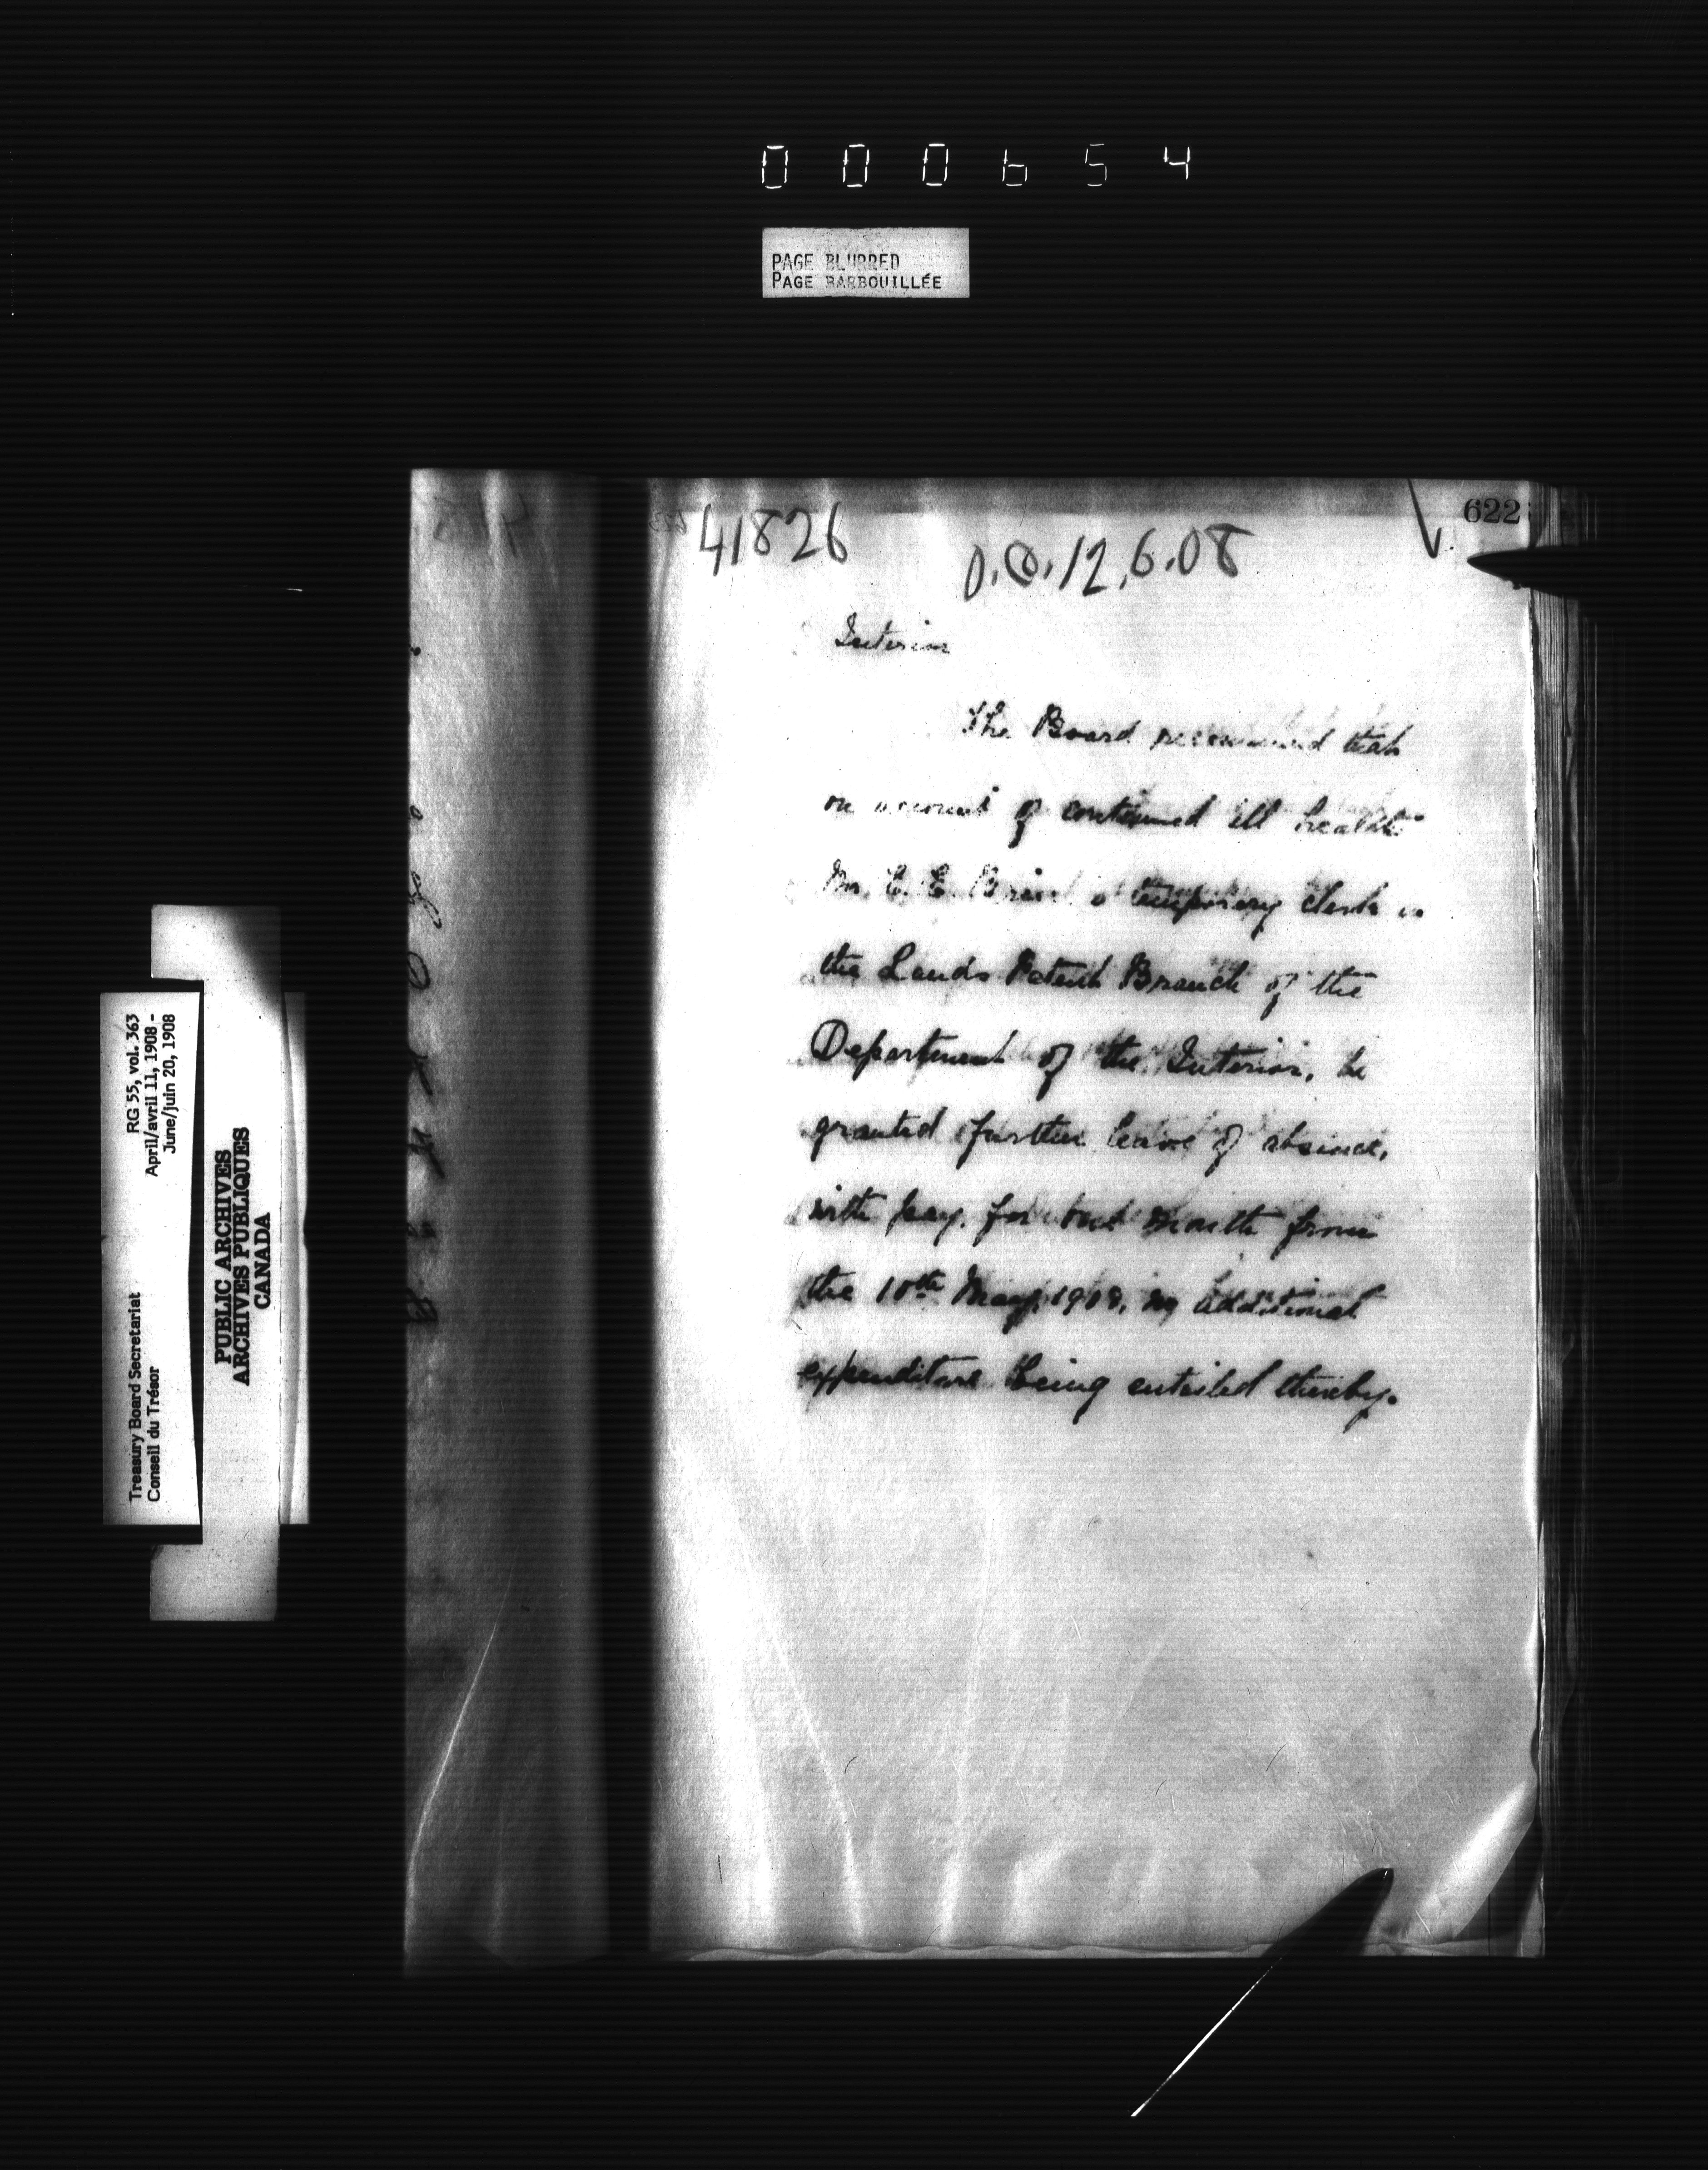 000654
PAGE BLURRED
PAGE BARBOUILLÉE
622
41826
O.C. 12.6.08
Interior
The Board recommend that
on account of continued ill health
Mr. C. E. a temporary clerk in
the Lands Patent Branch of the
Department of the Interior, be
granted further leave of absence,
with pay, for month from
the 10th May, 1908, no additional
expenditure being entailed thereby.
RG 55, vol. 363
April/avril 11, 1908 -
June/juin 20, 1908
Treasury Board Secretariat
Conseil du Trésor
PUBLIC ARCHIVES
ARCHIVES PUBLIQUES
CANADA